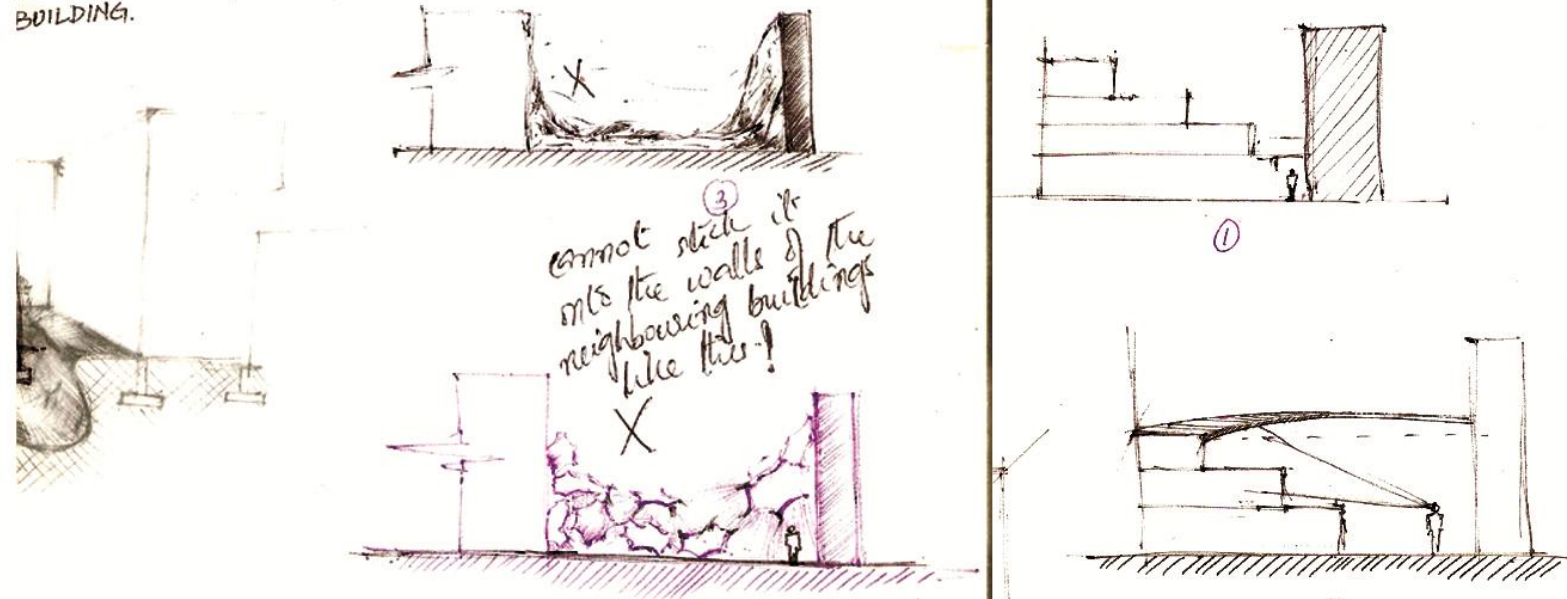 BUILDING.
X
3
cannot stick it
onto the walls of the
neighbouring buildings
like this!
X
1